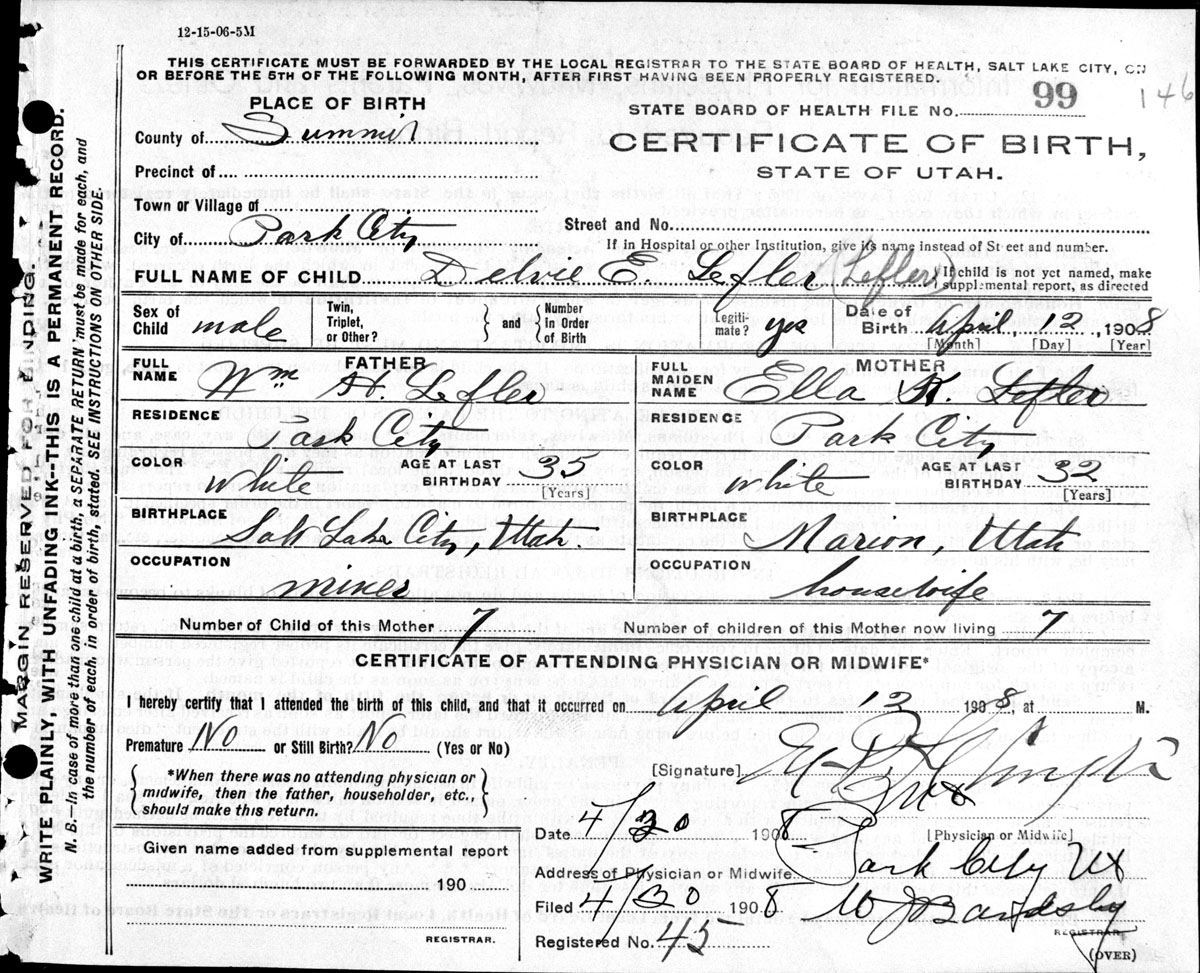 12-15-06-5M
THIS CERTIFICATE MUST BE FORWARDED BY THE LOCAL REGISTRAR TO THE STATE BOARD OF HEALTH, SALT LAKE CITY, ON
OR BEFORE THE 5TH OF THE FOLLOWING MONTH, AFTER FIRST HAVING BEEN PROPERLY REGISTERED.
PLACE OF BIRTH
STATE BOARD OF HEALTH FILE No. 99 146
County of Summit
CERTIFICATE OF BIRTH,
STATE OF UTAH.
Precinct of
Town or Village of
Street and No.
City of Park City
If in Hospital or other Institution, give its name instead of St eet and number.
FULL NAME OF CHILD Delvie E. Lefler (Lefler) If child is not yet named, make supplemental report, as directed
Sex of Child male Twin, Triplet, or Other? } and { Number in Order of Birth Legiti-mate? yes Date of Birth April 12, 1908
[Month] [Day] [Year]
FATHER MOTHER
FULL NAME Wm H. Lefler FULL MAIDEN NAME Ella R. Lefler
RESIDENCE Park City RESIDENCE Park City
COLOR White AGE AT LAST BIRTHDAY 35 [Years] COLOR White AGE AT LAST BIRTHDAY 32 [Years]
BIRTHPLACE Salt Lake City, Utah. BIRTHPLACE Marion, Utah
OCCUPATION miner OCCUPATION housewife
Number of Child of this Mother 7 Number of children of this Mother now living 7
CERTIFICATE OF ATTENDING PHYSICIAN OR MIDWIFE*
I hereby certify that I attended the birth of this child, and that it occurred on April 12 1908, at M.
Premature No or Still Birth? No (Yes or No)
[Signature]
*When there was no attending physician or
midwife, then the father, householder, etc.,
should make this return.
Date 4/30 1908 [Physician or Midwife]
Given name added from supplemental report
Address of Physician or Midwife Park City Ut
190
Filed 4/30 1908 W J Bardsley
REGISTRAR. REGISTRAR.
Registered No. 45
(OVER)
MARGIN RESERVED FOR BINDING.
WRITE PLAINLY, WITH UNFADING INK--THIS IS A PERMANENT RECORD.
N. B.—In case of more than one child at a birth, a SEPARATE RETURN must be made for each, and
the number of each, in order of birth, stated. SEE INSTRUCTIONS ON OTHER SIDE.